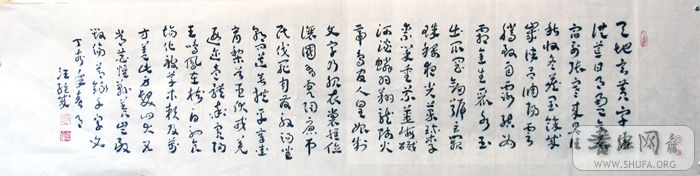 天地玄黄宇宙
洪荒日月盈昃辰
宿列张寒来暑往
秋收冬藏闰余成
岁律吕调阳云
腾致雨露结为
霜金生丽水玉
出昆冈剑号巨阙
珠称夜光果珍李
柰菜重芥姜海咸
河淡鳞潜羽翔龙师火
帝鸟官人皇始制
文字乃服衣裳推位
让国有虞陶唐吊
民伐罪周发殷汤坐
朝问道垂拱平章爱
育黎首臣伏戎羌
遐迩一体率宾归
王鸣凤在树白驹食
场化被草木赖及万
方盖此身发四大五
常恭惟鞠养岂敢
毁伤 录千字文
丁亥年春月
书法网
WWW.SHUFA.ORG